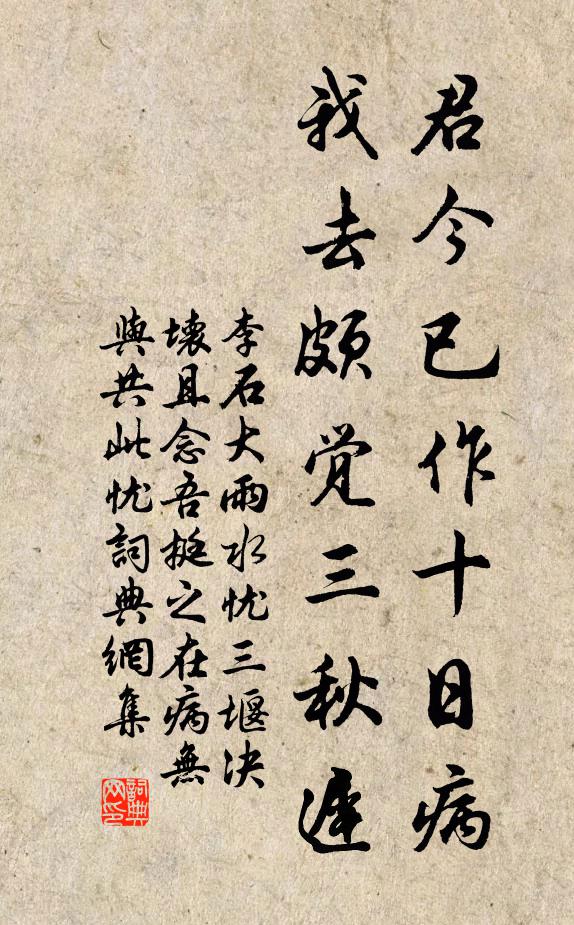 君今已作十日病
我去颇觉三秋遲
李石大雨水忧三堰决
壊且念吾挺之在病無
與共此忧詞典網集
詞典
网印